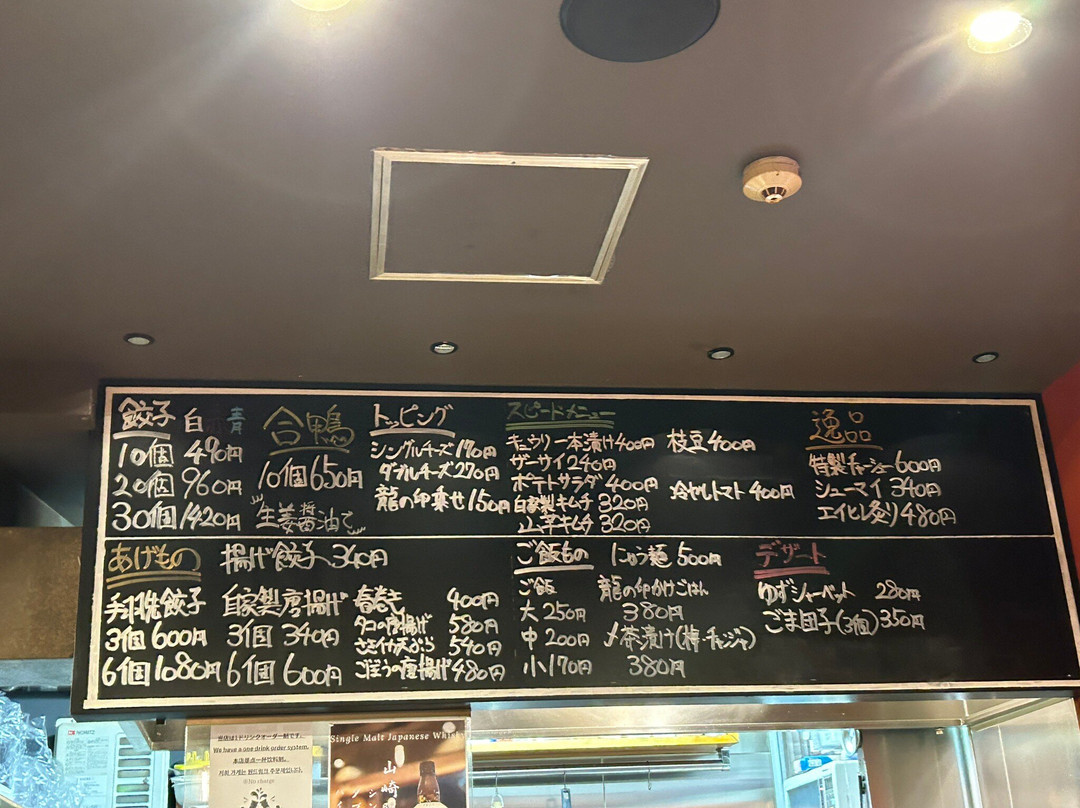 餃子 白 赤 青
10個 490円
20個 960円
30個 1420円
合鴨
10個 650円
生姜醤油で
トッピング
シングルチーズ 170円
ダブルチーズ 270円
龍の卵乗せ 150円
スピードメニュー
キュウリ一本漬け 400円
ザーサイ 240円
ポテトサラダ 400円
自家製キムチ 320円
山芋キムチ 320円
枝豆 400円
冷やしトマト 400円
逸品
特製チャーシュー 600円
シューマイ 340円
エイヒレ炙り 480円
あげもの
揚げ餃子 340円
手羽先餃子
3個 600円
6個 1080円
自家製唐揚げ
3個 340円
6個 600円
春巻き 400円
タコの唐揚げ 580円
ささイカ天ぷら 540円
ごぼうの唐揚げ 480円
ご飯もの
ご飯
大 250円
中 200円
小 170円
にゅう麺 500円
龍の卵かけごはん
380円
〆茶漬け(梅・チャンジャ)
380円
デザート
ゆずシャーベット 280円
ごま団子(3個) 350円
NORITZ
当店は1ドリンクオーダー制です。
We have a one drink order system.
本店是点一杯饮料制。
저희 가게는 원드링크 주문제입니다.
Single Malt Japanese Whisky
山崎